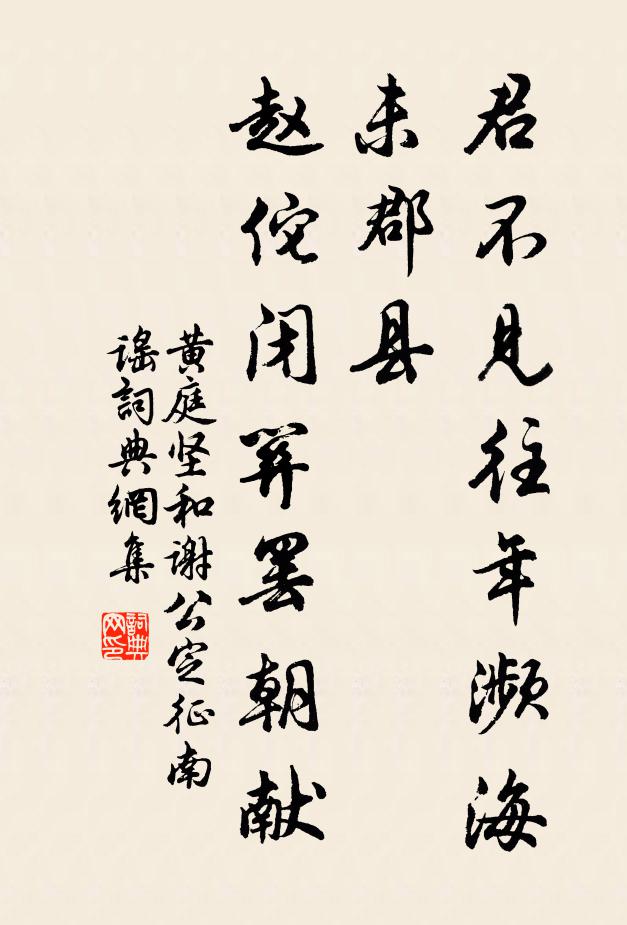 君不见往年濒海
未郡县
赵佗闭关罢朝献
黄庭坚和谢公定征南
谣詞典網集
詞典
网印